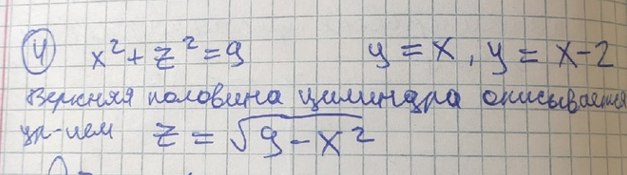 ④ x² + z² = 9 y = x, y = x - 2
Верхняя половина цилиндра описывается
ур-ием z = √(9 - x²)